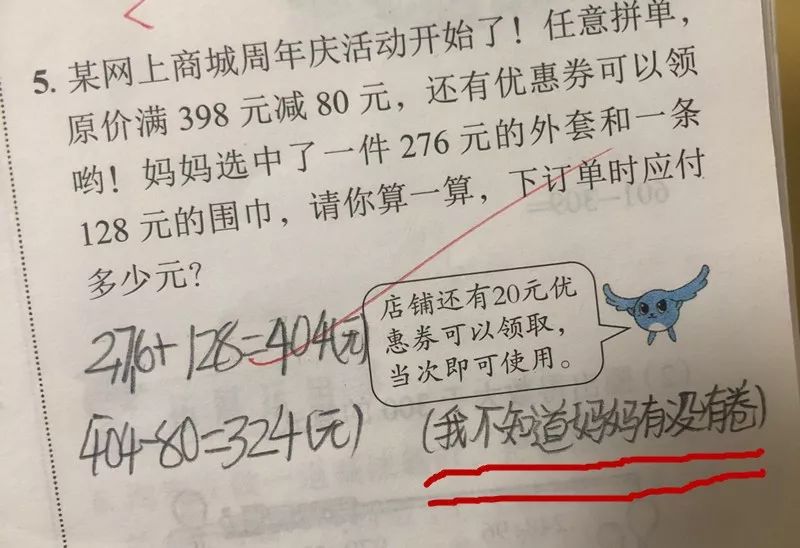 5. 某网上商城周年庆活动开始了！任意拼单，
原价满 398 元减 80 元，还有优惠券可以领
哟！妈妈选中了一件 276 元的外套和一条
128 元的围巾，请你算一算，下订单时应付
多少元？
店铺还有20元优
惠券可以领取，
当次即可使用。
276+128=404(元)
404-80=324(元)
(我不知道妈妈有没有卷)
601-309=